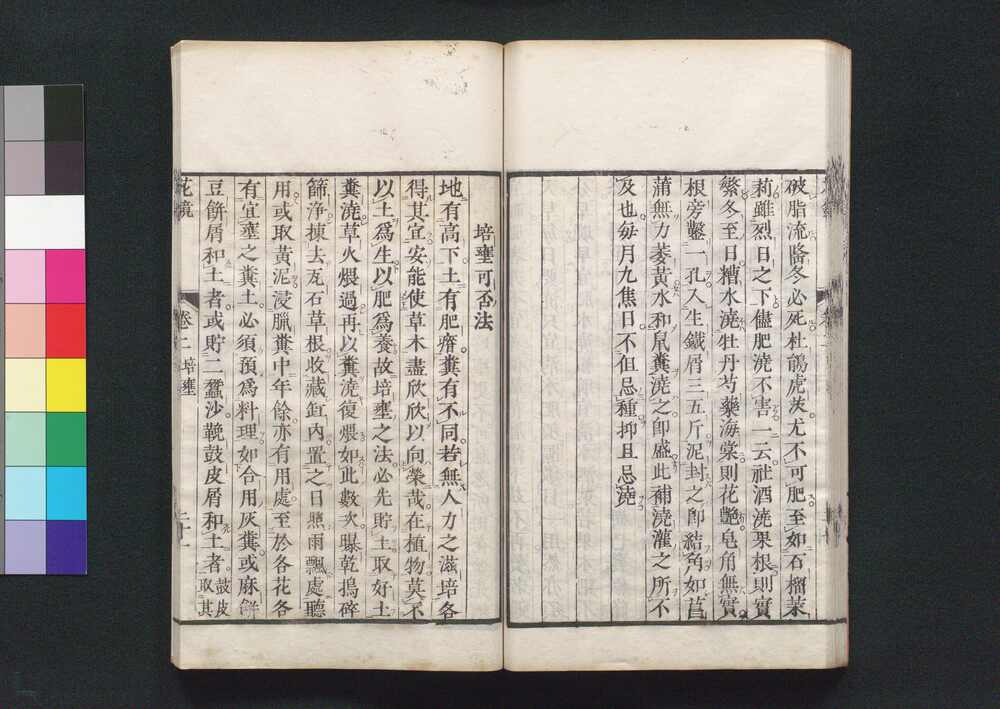 破脂流隨冬必死杜鵑虎茨尤不可肥至如石榴茉
莉雖烈日之下儘肥澆不害一云社酒澆果根則實
繁冬至日糟水澆牡丹芍藥海棠則花艷皂角無實
根旁鑿一孔入生鐵屑三五斤泥封之卽結角如菖
蒲無力萎黃水和鼠糞澆之卽盛此補澆灌之所不
及也每月九焦日不但忌種抑且忌澆
培壅可否法
地有高下土有肥瘠糞有不同若無人力之滋培各
得其宜安能使草木盡欣欣以向榮哉在植物莫不
以土爲生以肥爲養故培壅之法必先貯土取好土
糞澆草火煨過再以糞澆復煨如此數次曝乾搗碎
篩淨揀去瓦石草根收藏缸內置之日照雨飄處聽
用或取黃泥浸臘糞中年餘亦有用處至於各花各
有宜壅之糞土必須預爲料理如合用灰糞或麻餅
豆餅屑和土者或貯二蠶沙鞔鼓皮屑和土者鼓皮
取其
花鏡 卷二 培壅 二十一